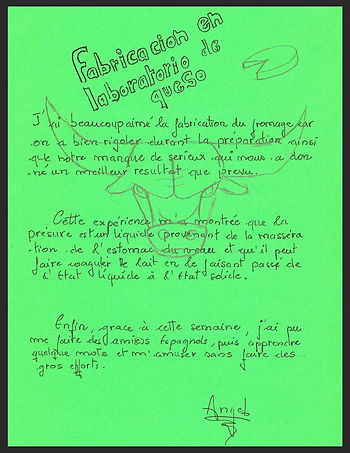 Fabricacion en
laboratorio de
queso
J'ai beaucoup aimé la fabrication du fromage car
on a bien rigoler durant la préparation ainsi
que notre manque de serieux qui nous a don-
ne un meilleur resultat que prevu.
Cette expérience m'a montrée que la
presure est un liquide provenant de la massera
-tion de l'estomac du veau et qu'il peut
faire coaguler le lait en le faisant passé de
l'Etat liquide à l'Etat solide.
Enfin, grace à cette semaine, j'ai pu
me faire des amis Espagnols, puis apprendre
quelque mots et m'amuser sans faire des
gros efforts.
Angel